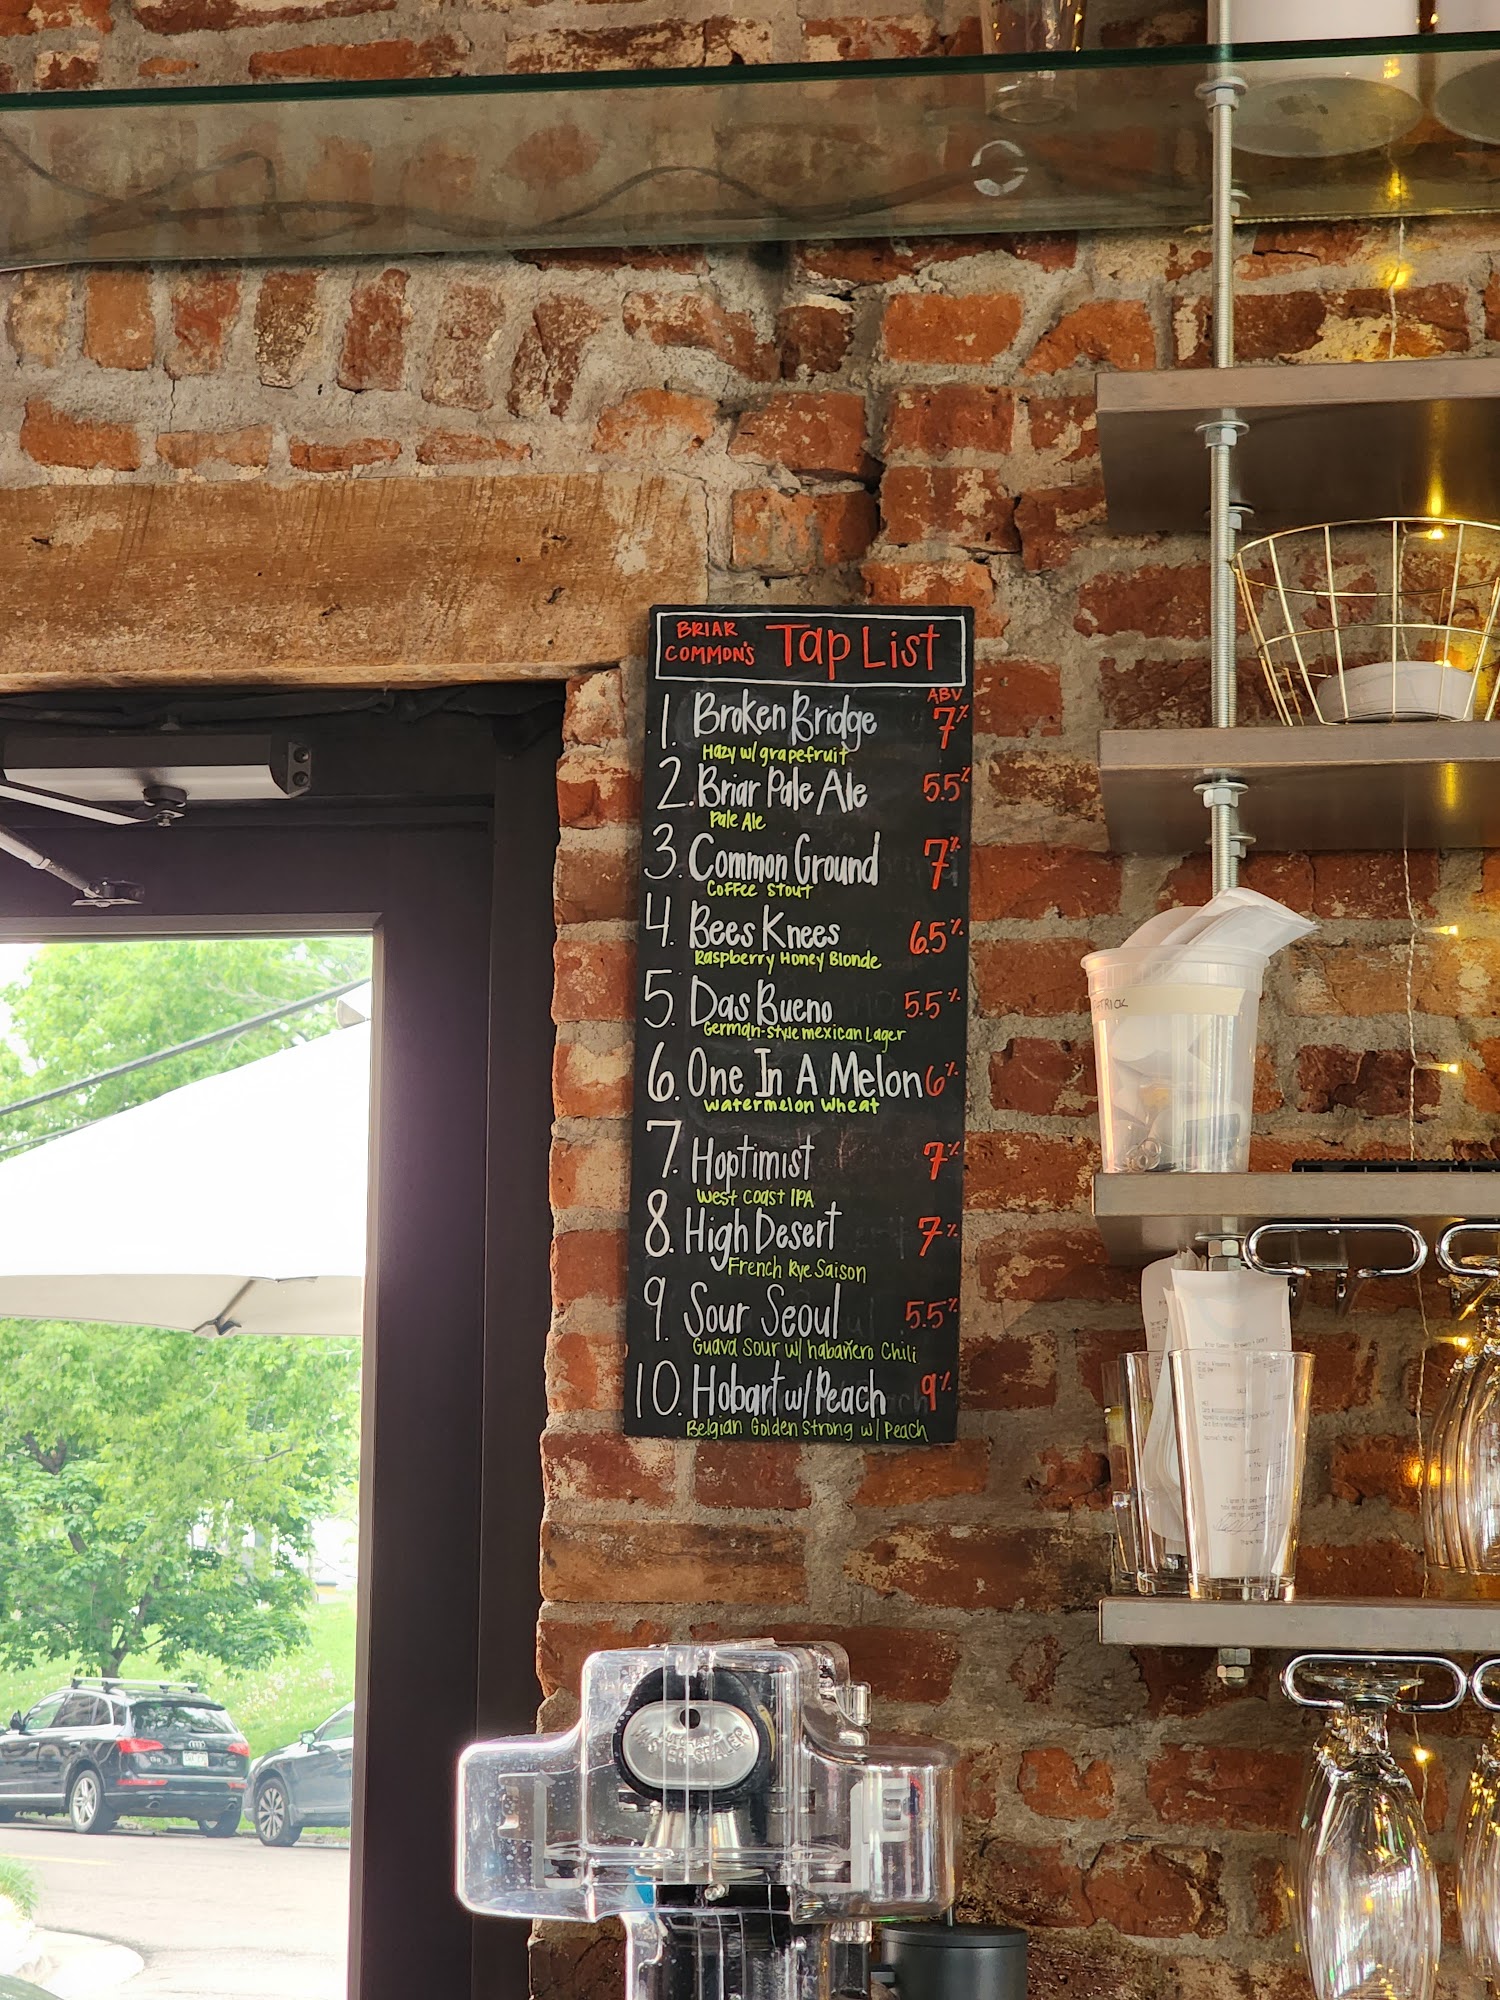 BRIAR
COMMON'S
Tap List
ABV
1. Broken Bridge 7%
Hazy w/ grapefruit
2. Briar Pale Ale 5.5%
Pale Ale
3. Common Ground 7%
Coffee Stout
4. Bees Knees 6.5%
Raspberry Honey Blonde
5. Das Bueno 5.5%
German-style mexican Lager
6. One In A Melon 6%
Watermelon Wheat
7. Hoptimist 7%
West Coast IPA
8. High Desert 7%
French Rye Saison
9. Sour Seoul 5.5%
Guava Sour w/ habañero Chili
10. Hobart w/ Peach 9%
Belgian Golden Strong w/ Peach